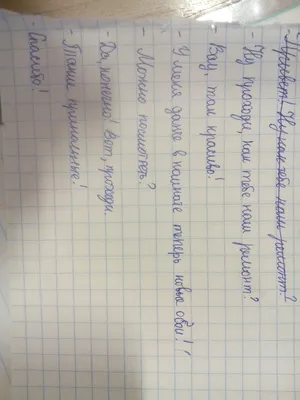 - Привет! Ну как тебе наш ремонт?
- Ну проходи, как тебе наш ремонт?
- Вау, так красиво!
- У меня даже в комнате теперь новые обои!
- Можно посмотреть?
- Да, конечно! Вот, проходи
- Такие прикольные!
- Спасибо!